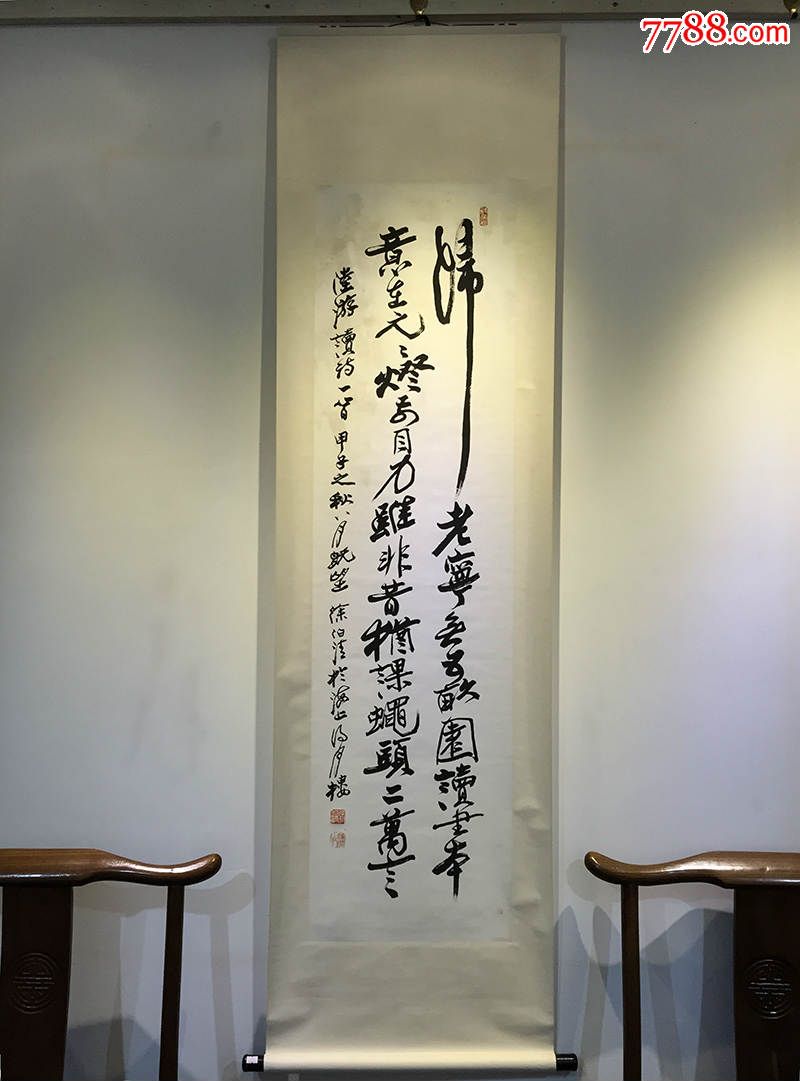 7788.com
歸老寧無五畝園讀書本
意在元々燈前目力雖非昔猶課蠅頭二萬言
陸游讀詩一首 甲子之秋八月既望 徐伯清於海上得月樓